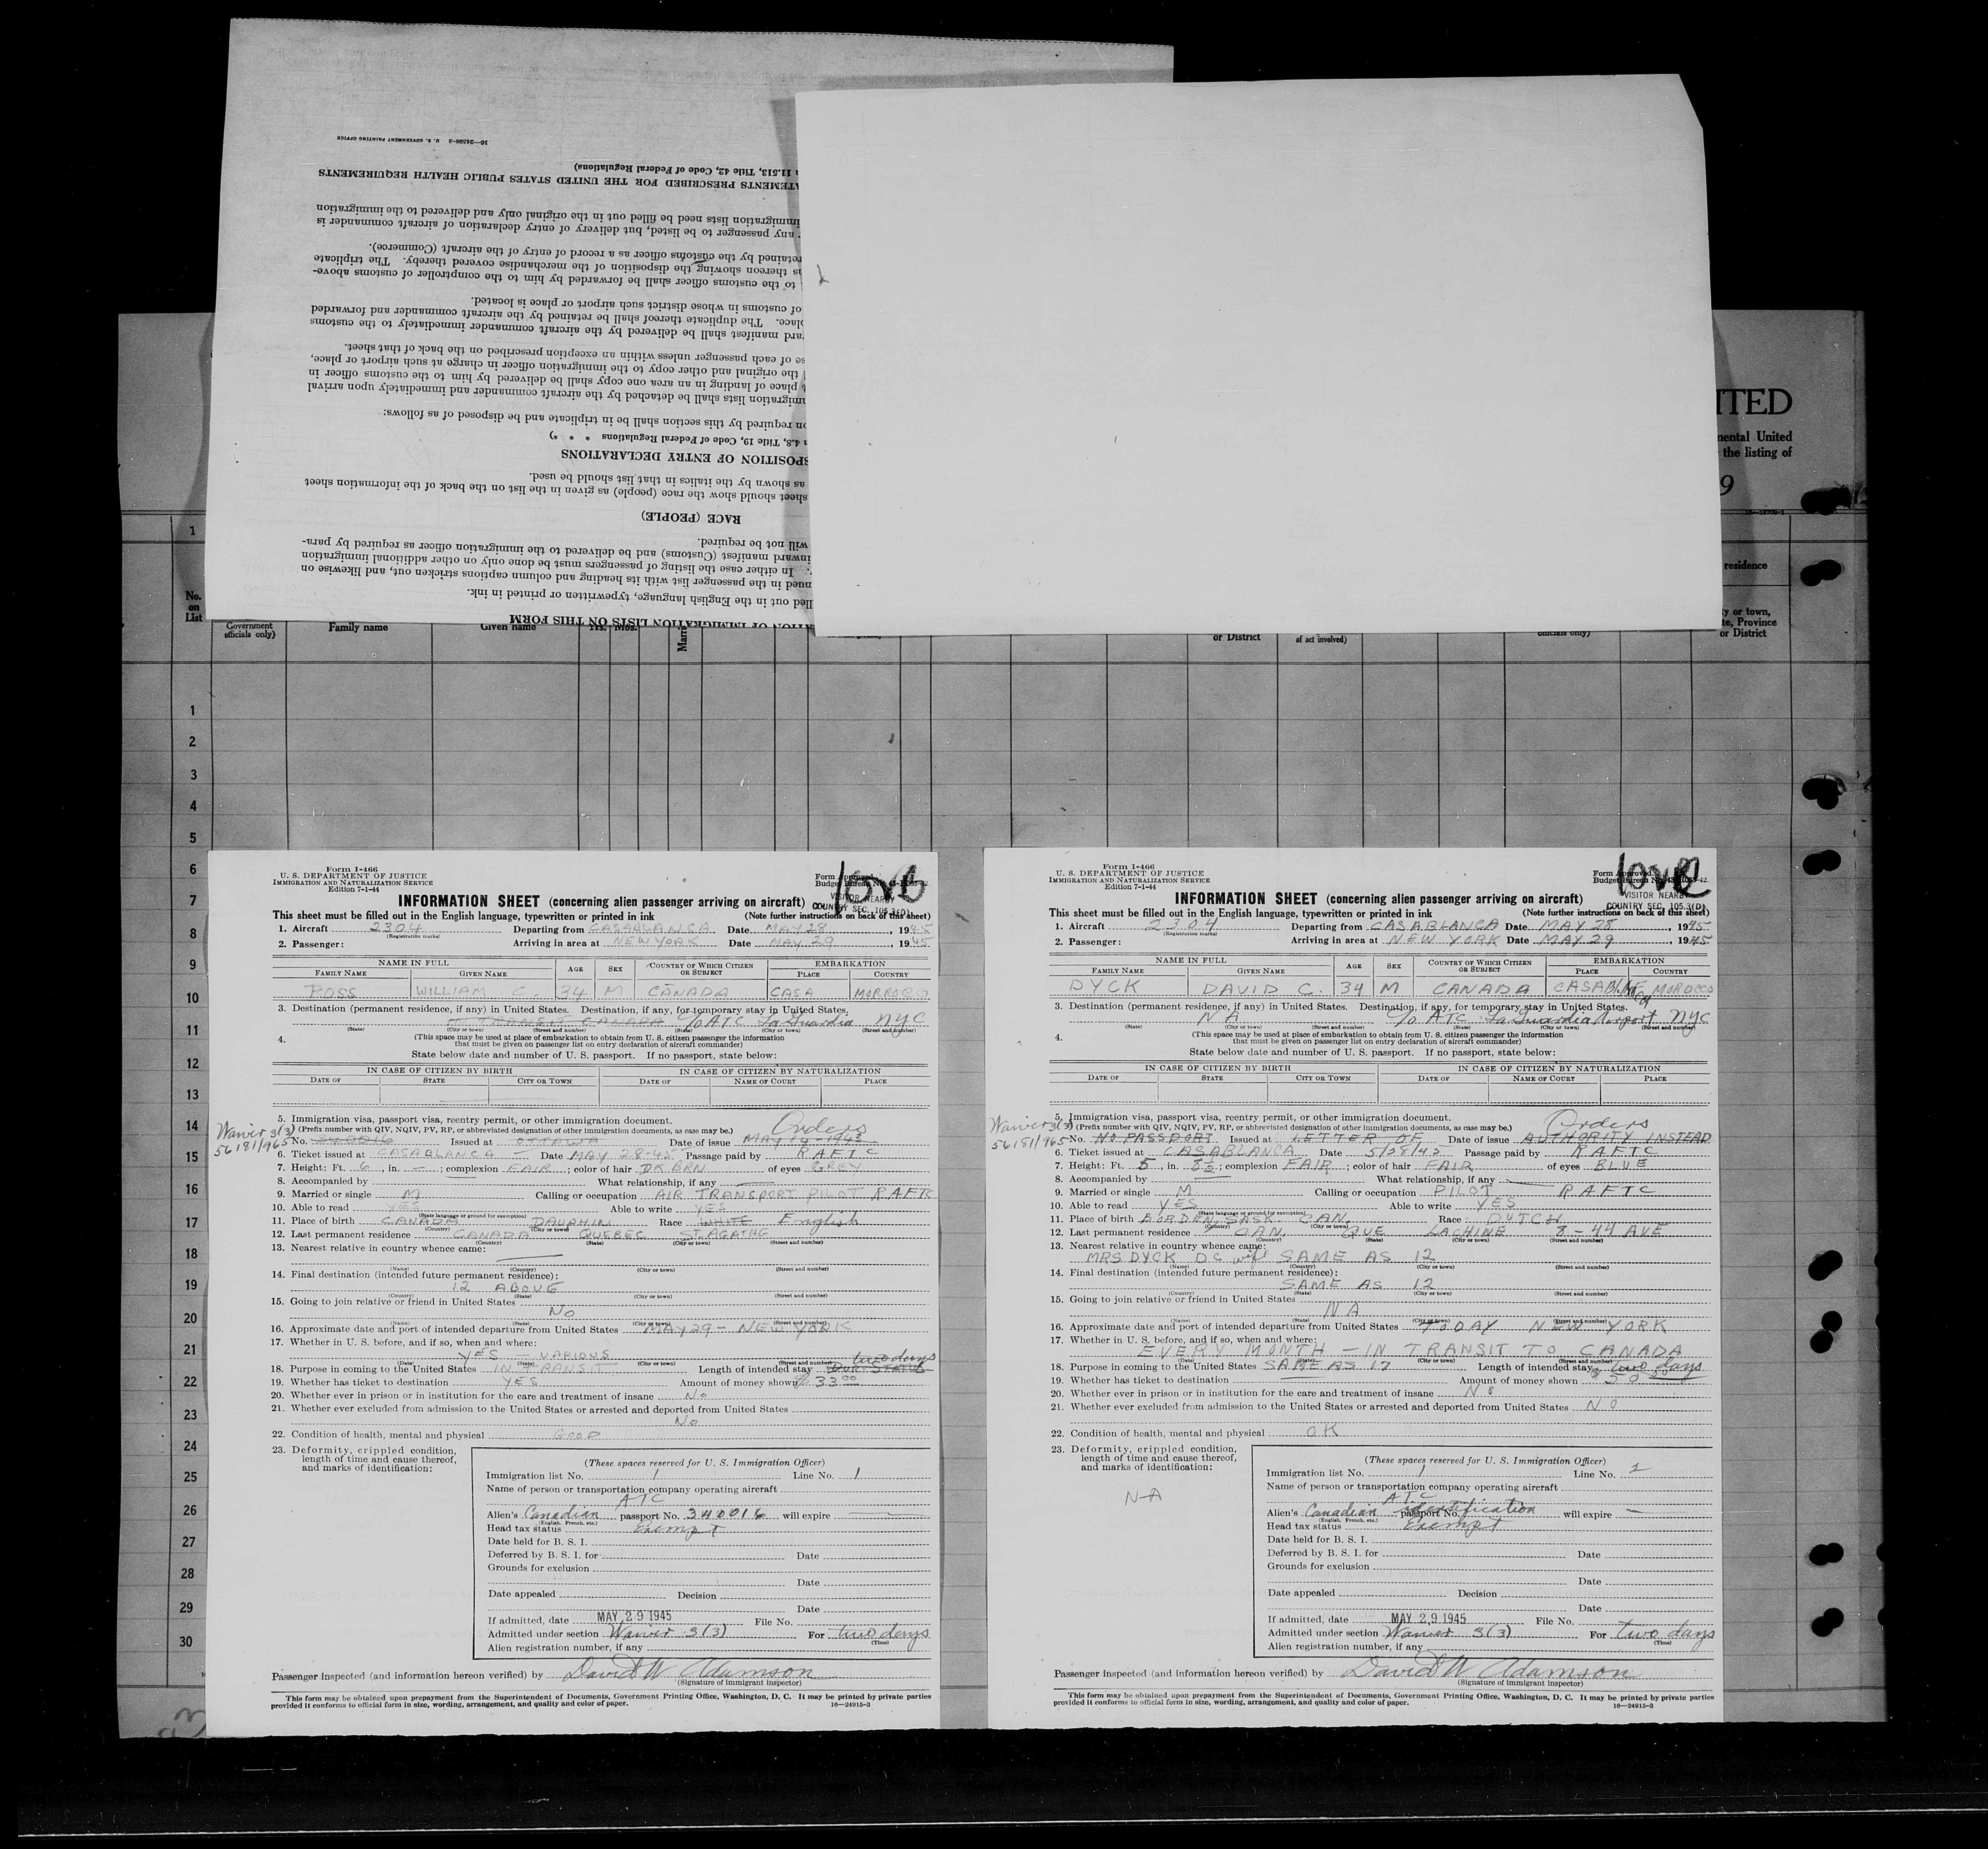 16—24598-3 U. S. GOVERNMENT PRINTING OFFICE
11.513, Title 42, Code of Federal Regulations)
ATEMENTS PRESCRIBED FOR THE UNITED STATES PUBLIC HEALTH REQUIREMENTS
immigration lists need be filled out in the original only and delivered to the immigration
any passenger to be listed, but delivery of entry declaration of aircraft commander is
retained by the customs officer as a record of entry of the aircraft (Commerce).
thereon showing the disposition of the merchandise covered thereby. The triplicate
to the customs officer shall be forwarded by him to the comptroller of customs above-
of customs in whose district such airport or place is located.
place. The duplicate thereof shall be retained by the aircraft commander and forwarded
ard manifest shall be delivered by the aircraft commander immediately to the customs
se of each passenger unless within an exception prescribed on the back of that sheet.
the original and other copy to the immigration officer in charge at such airport or place,
place of landing in an area one copy shall be delivered by him to the customs officer in
mmigration lists shall be detached by the aircraft commander and immediately upon arrival
on required by this section shall be in triplicate and be disposed of as follows:
4.8, Title 19, Code of Federal Regulations * * *)
SPOSITION OF ENTRY DECLARATIONS
as shown by the italics in that list should be used.
sheet should show the race (people) as given in the list on the back of the information sheet
RACE (PEOPLE)
will not be required.
inward manifest (Customs) and be delivered to the immigration officer as required by para-
In either case the listing of passengers must be done only on other additional immigration
nued in the passenger list with its heading and column captions stricken out, and likewise on
lled out in the English language, typewritten or printed in ink.
ATION OF IMMIGRATION LISTS ON THIS FORM
ITED
nental United
the listing of
9
1
residence
No. on List
Government officials only)
Family name
Given name
Yrs. Mos.
Marri
or District
of act involved)
officials only)
y or town,
te, Province
or District
1
2
3
4
5
6
7
8
9
10
11
12
13
14
15
16
17
18
19
20
21
22
23
24
25
26
27
28
29
30
Form I-466
U. S. DEPARTMENT OF JUSTICE
IMMIGRATION AND NATURALIZATION SERVICE
Edition 7-1-44
Form Approved
Budget Bureau No.
VISITOR NEARBY
COUNTRY SEC. 105.3(D)
INFORMATION SHEET (concerning alien passenger arriving on aircraft)
This sheet must be filled out in the English language, typewritten or printed in ink (Note further instructions on back of this sheet)
1. Aircraft 2304 Departing from CASABLANCA Date MAY 28, 1945
(Registration marks)
2. Passenger: Arriving in area at NEW YORK Date MAY 29 1945
NAME IN FULL AGE SEX COUNTRY OF WHICH CITIZEN OR SUBJECT EMBARKATION
FAMILY NAME GIVEN NAME PLACE COUNTRY
ROSS WILLIAM C. 34 M CANADA CASA MORROCO
3. Destination (permanent residence, if any) in United States. Destination, if any, for temporary stay in United States.
IN TRANSIT CANADA c/o ATC La Guardia NYC
(State) (City or town) (Street and number) (State) (City or town) (Street and number)
4. (This space may be used at place of embarkation to obtain from U. S. citizen passenger the information
that must be given on passenger list on entry declaration of aircraft commander)
State below date and number of U. S. passport. If no passport, state below:
IN CASE OF CITIZEN BY BIRTH IN CASE OF CITIZEN BY NATURALIZATION
DATE OF STATE CITY OR TOWN DATE OF NAME OF COURT PLACE
5. Immigration visa, passport visa, reentry permit, or other immigration document. Orders
Waiver 3(3) (Prefix number with QIV, NQIV, PV, RP, or abbreviated designation of other immigration documents, as case may be.)
56181/965 No. 340016 Issued at OTTAWA Date of issue MAY 14-1943
6. Ticket issued at CASABLANCA Date MAY 28-45 Passage paid by RAFTC
7. Height: Ft. 6, in. —; complexion FAIR; color of hair DK BRN of eyes GREY
8. Accompanied by What relationship, if any
9. Married or single M Calling or occupation AIR TRANSPORT PILOT RAFTC
10. Able to read YES Able to write YES
(State language or ground for exemption)
11. Place of birth CANADA DAUPHIN Race WHITE English
(Country) (City or town)
12. Last permanent residence CANADA QUEBEC ST. AGATHE
(Country) (State) (City or town) (Street and number)
13. Nearest relative in country whence came:
(Name) (Country) (City or town) (Street and number)
14. Final destination (intended future permanent residence):
12 ABOVE
(Country) (State) (City or town) (Street and number)
15. Going to join relative or friend in United States
No
(Name) (State) (City or town) (Street and number)
16. Approximate date and port of intended departure from United States MAY 29 - NEW YORK
17. Whether in U. S. before, and if so, when and where:
YES — VARIOUS
(Date) (State) (City or town) (Street and number)
18. Purpose in coming to the United States IN TRANSIT Length of intended stay two days
19. Whether has ticket to destination YES Amount of money shown $33.00
20. Whether ever in prison or in institution for the care and treatment of insane No
21. Whether ever excluded from admission to the United States or arrested and deported from United States
No
22. Condition of health, mental and physical GOOD
23. Deformity, crippled condition, length of time and cause thereof, and marks of identification:
(These spaces reserved for U. S. Immigration Officer)
Immigration list No. 1 Line No. 1
Name of person or transportation company operating aircraft
ATC
Alien's Canadian passport No. 340016 will expire
(English, French, etc.)
Head tax status Exempt
Date held for B. S. I.
Deferred by B. S. I. for Date
Grounds for exclusion
Date
Date appealed Decision
Date
If admitted, date MAY 29 1945 File No.
Admitted under section Waiver 3(3) For two days
(Time)
Alien registration number, if any
Passenger inspected (and information hereon verified) by David W Adamson
(Signature of immigrant inspector)
This form may be obtained upon prepayment from the Superintendent of Documents, Government Printing Office, Washington, D. C. It may be printed by private parties
provided it conforms to official form in size, wording, arrangement, and quality and color of paper. 16—24915-3
Form I-466
U. S. DEPARTMENT OF JUSTICE
IMMIGRATION AND NATURALIZATION SERVICE
Edition 7-1-44
Form Approved
Budget Bureau No.
VISITOR NEARBY
COUNTRY SEC. 105.3(D)
INFORMATION SHEET (concerning alien passenger arriving on aircraft)
This sheet must be filled out in the English language, typewritten or printed in ink (Note further instructions on back of this sheet)
1. Aircraft 2304 Departing from CASABLANCA Date MAY 28, 1945
(Registration marks)
2. Passenger: Arriving in area at NEW YORK Date MAY 29, 1945
NAME IN FULL AGE SEX COUNTRY OF WHICH CITIZEN OR SUBJECT EMBARKATION
FAMILY NAME GIVEN NAME PLACE COUNTRY
DYCK DAVID C. 34 M CANADA MOROCCO
3. Destination (permanent residence, if any) in United States. Destination, if any, for temporary stay in United States.
NA c/o ATC La Guardia Airport NYC
(State) (City or town) (Street and number) (State) (City or town) (Street and number)
4. (This space may be used at place of embarkation to obtain from U. S. citizen passenger the information
that must be given on passenger list on entry declaration of aircraft commander)
State below date and number of U. S. passport. If no passport, state below:
IN CASE OF CITIZEN BY BIRTH IN CASE OF CITIZEN BY NATURALIZATION
DATE OF STATE CITY OR TOWN DATE OF NAME OF COURT PLACE
5. Immigration visa, passport visa, reentry permit, or other immigration document. Orders
Waiver 3(3) (Prefix number with QIV, NQIV, PV, RP, or abbreviated designation of other immigration documents, as case may be.)
56181/965 No. NO PASSPORT Issued at LETTER OF Date of issue AUTHORITY INSTEAD
6. Ticket issued at CASABLANCA Date 5/28/45 Passage paid by RAFTC
7. Height: Ft. 5, in. 8½; complexion FAIR; color of hair FAIR of eyes BLUE
8. Accompanied by What relationship, if any
9. Married or single M Calling or occupation PILOT RAFTC
10. Able to read YES Able to write YES
(State language or ground for exemption)
11. Place of birth BORDEN, SASK CAN. Race DUTCH
(Country) (City or town)
12. Last permanent residence CAN. QUE LACHINE 8-44 AVE
(Country) (State) (City or town) (Street and number)
13. Nearest relative in country whence came:
MRS DYCK DC wife SAME AS 12
(Name) (Country) (City or town) (Street and number)
14. Final destination (intended future permanent residence):
SAME AS 12
(Country) (State) (City or town) (Street and number)
15. Going to join relative or friend in United States
NA
(Name) (State) (City or town) (Street and number)
16. Approximate date and port of intended departure from United States TODAY NEW YORK
17. Whether in U. S. before, and if so, when and where:
EVERY MONTH — IN TRANSIT TO CANADA
(Date) (State) (City or town) (Street and number)
18. Purpose in coming to the United States SAME AS 17 Length of intended stay two days
19. Whether has ticket to destination Amount of money shown $50.00
20. Whether ever in prison or in institution for the care and treatment of insane No
21. Whether ever excluded from admission to the United States or arrested and deported from United States NO
22. Condition of health, mental and physical OK
23. Deformity, crippled condition, length of time and cause thereof, and marks of identification:
N-A
(These spaces reserved for U. S. Immigration Officer)
Immigration list No. 1 Line No. 2
Name of person or transportation company operating aircraft
ATC
Alien's Canadian passport No. identification will expire —
(English, French, etc.)
Head tax status Exempt
Date held for B. S. I.
Deferred by B. S. I. for Date
Grounds for exclusion
Date
Date appealed Decision
Date
If admitted, date MAY 29 1945 File No.
Admitted under section Waiver 3(3) For two days
(Time)
Alien registration number, if any
Passenger inspected (and information hereon verified) by David W Adamson
(Signature of immigrant inspector)
This form may be obtained upon prepayment from the Superintendent of Documents, Government Printing Office, Washington, D. C. It may be printed by private parties
provided it conforms to official form in size, wording, arrangement, and quality and color of paper. 16—24915-3